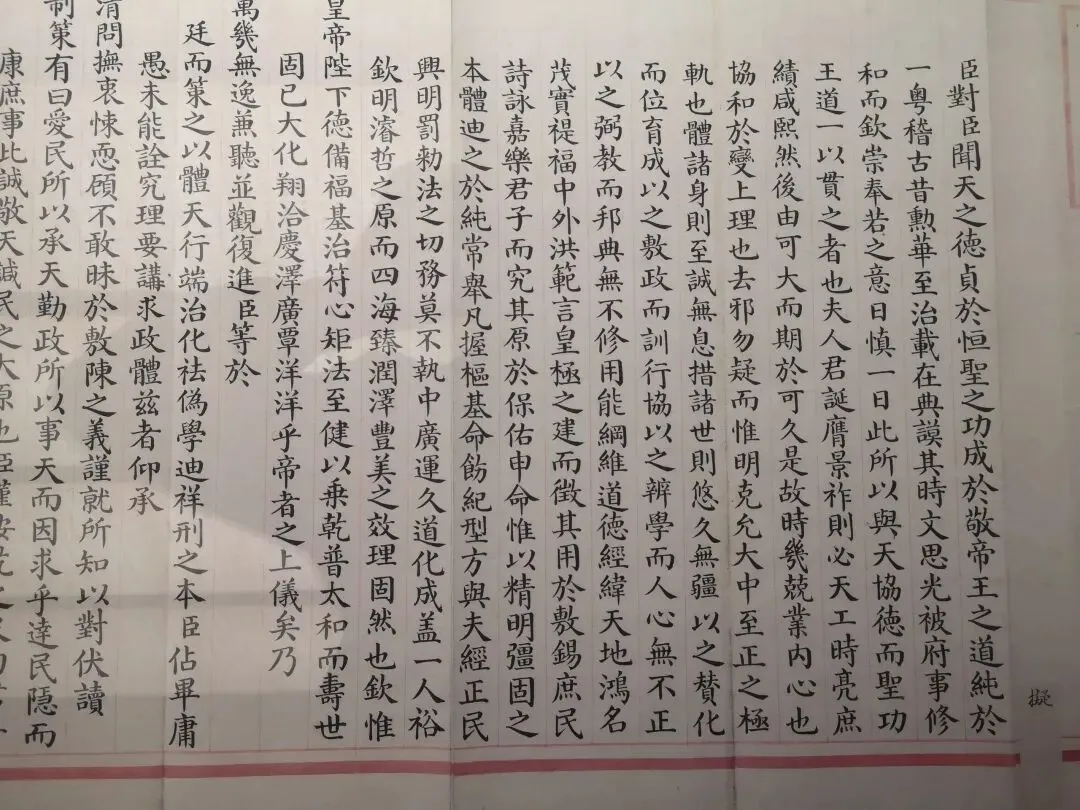 擬
臣對臣聞天之德貞於恒聖之功成於敬帝王之道純於
一粵稽古昔勲華至治載在典謨其時文思光被府事修
和而欽崇奉若之意日慎一日此所以與天協德而聖功
王道一以貫之者也夫人君誕膺景祚則必天工時亮庶
績咸熙然後由可大而期於可久是故時幾兢業内心也
協和於變上理也去邪勿疑而惟明克允大中至正之極
軌也體諸身則至誠無息措諸世則悠久無疆以之賛化
而位育成以之敷政而訓行協以之辨學而人心無不正
以之弼教而邦典無不修用能綱維道德經緯天地鴻名
茂實禔福中外洪範言皇極之建而徵其用於敷錫庶民
詩詠嘉樂君子而究其原於保佑申命惟以精明彊固之
本體迪之於純常舉凡握樞基命飭紀型方與夫經正民
興明罰勅法之切務莫不執中廣運久道化成盖一人裕
欽明濬哲之原而四海臻潤澤豐美之效理固然也欽惟
皇帝陛下德備福基治符心矩法至健以乗乾普太和而壽世
固已大化翔洽慶澤廣覃洋洋乎帝者之上儀矣乃
萬幾無逸兼聽並觀復進臣等於
廷而策之以體天行端治化祛偽學迪祥刑之本臣佔畢庸
愚未能詮究理要講求政體兹者仰承
清問撫衷悚恧顧不敢昧於敷陳之義謹就所知以對伏讀
制策有曰愛民所以承天勤政所以事天而因求乎逹民隠而
康庶事此誠敬天諴民之大原也臣謹案